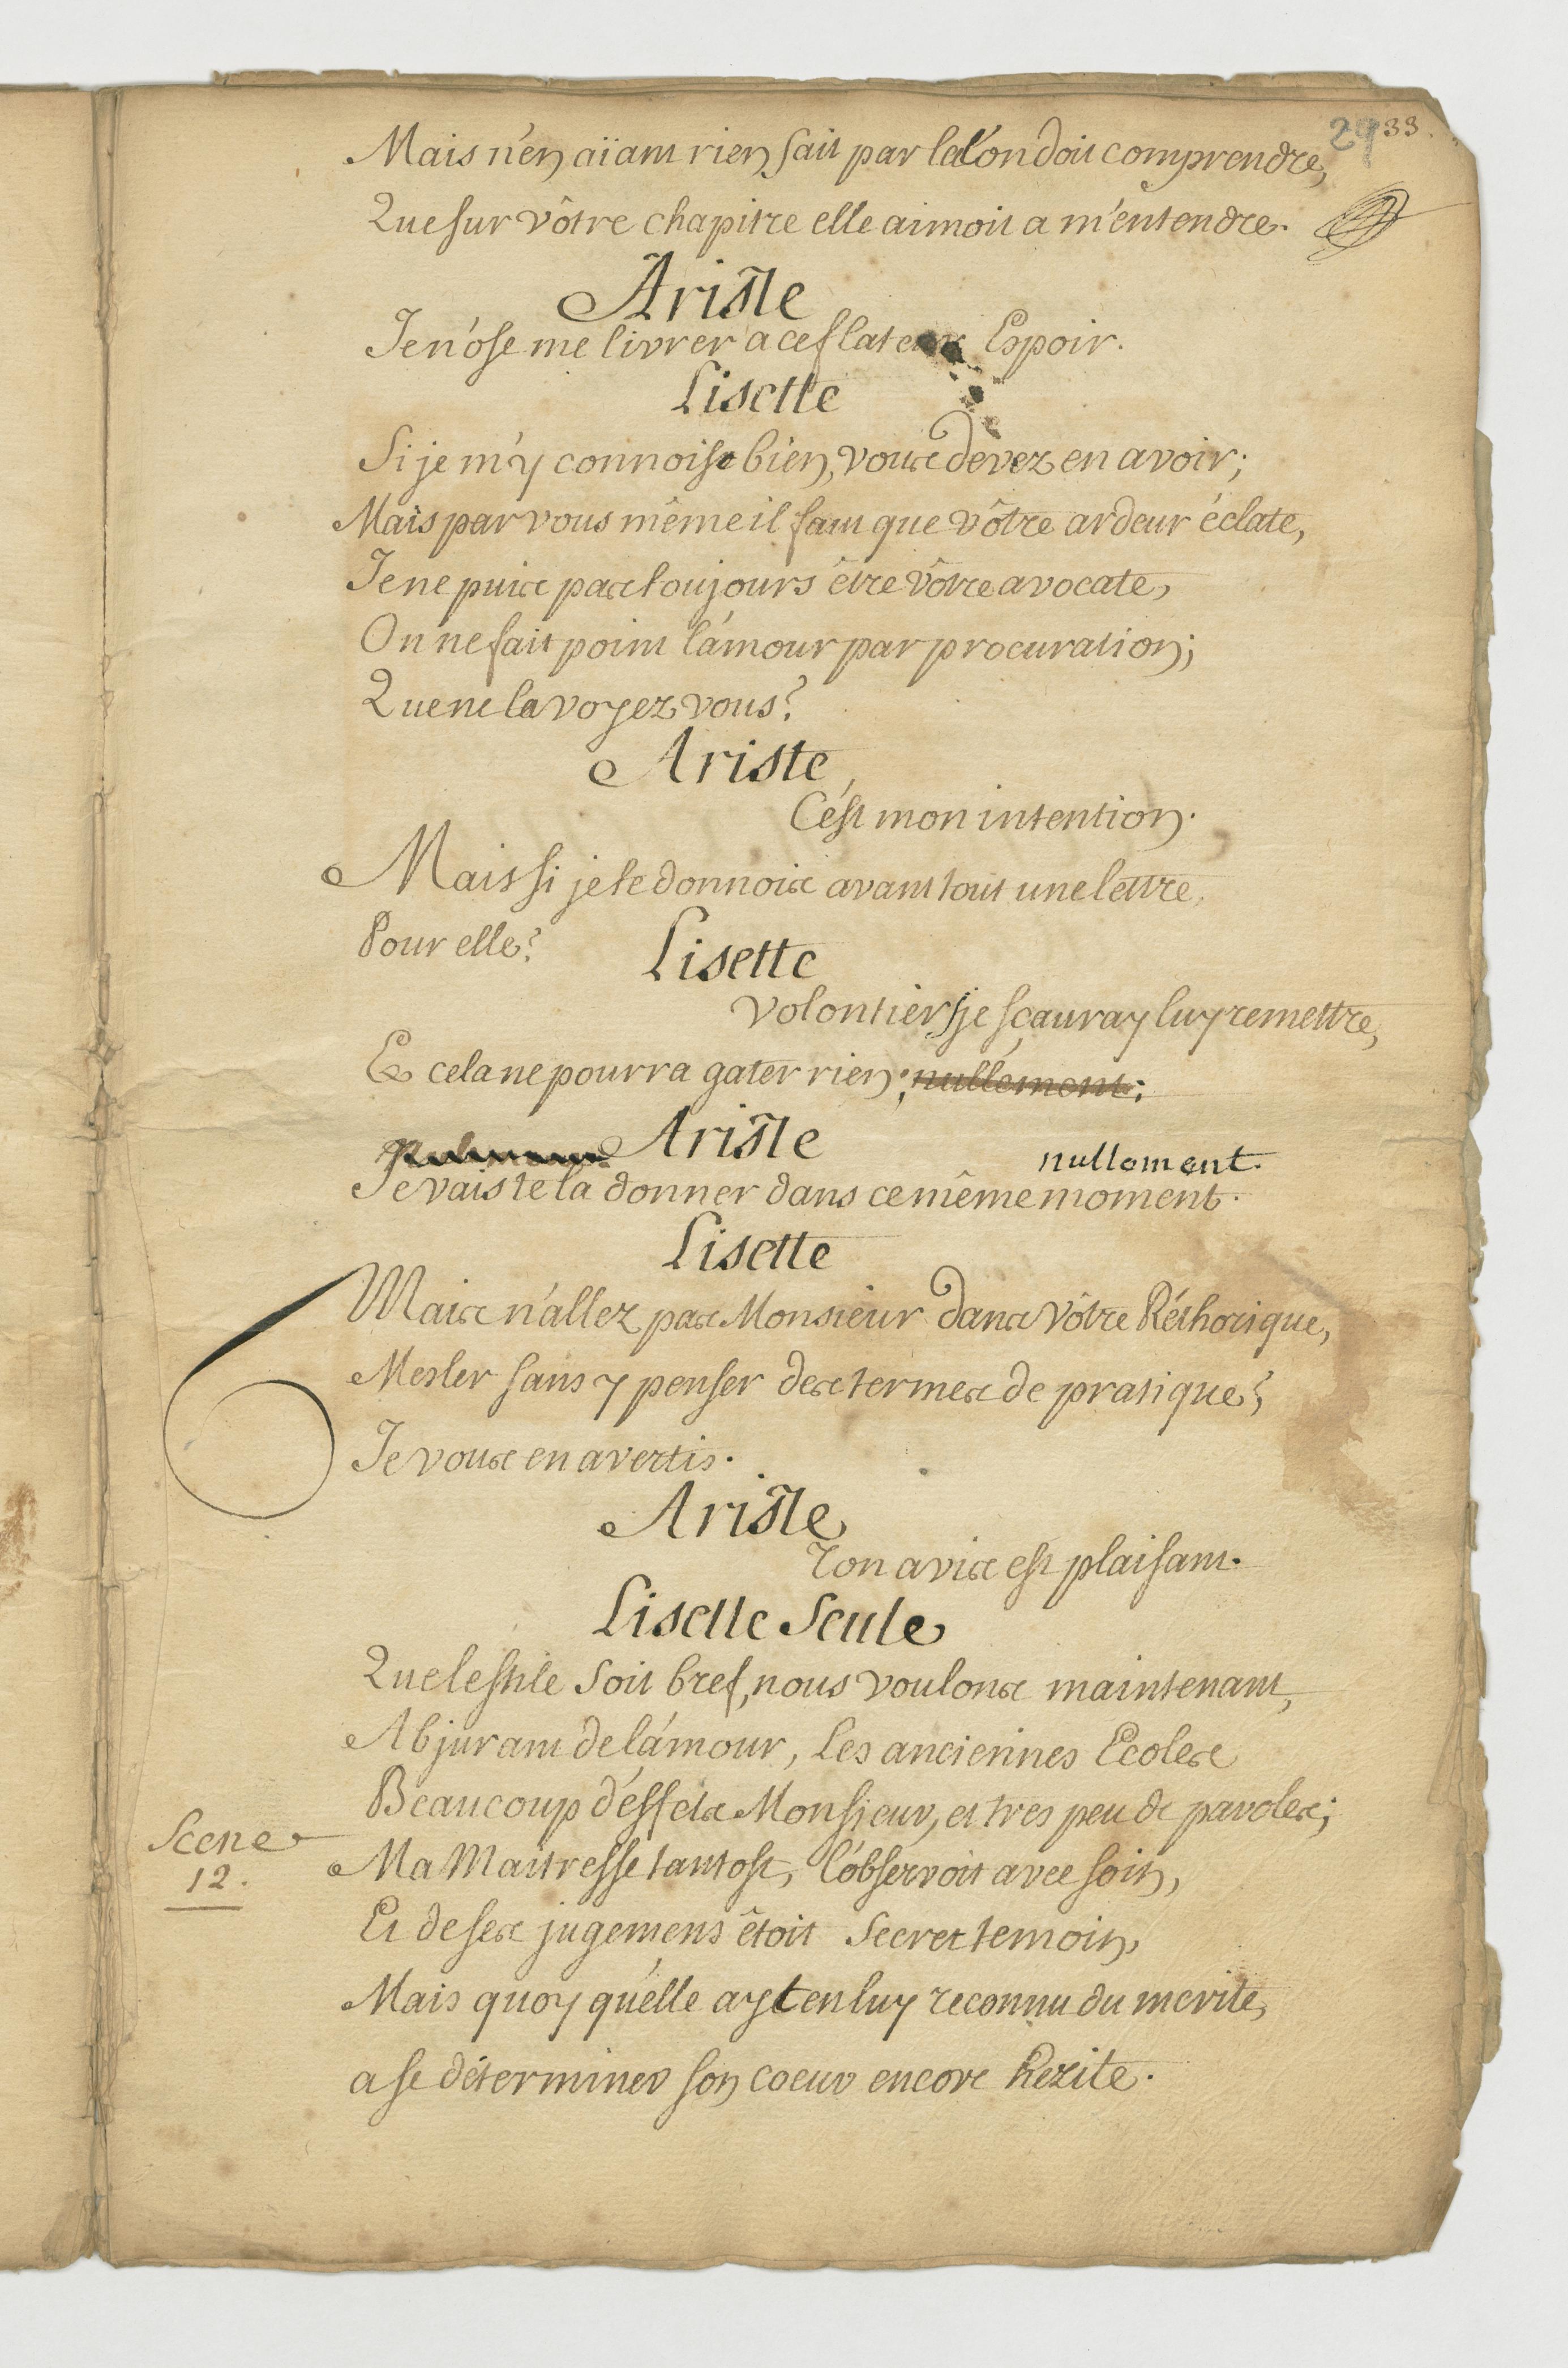 29 33.
Mais n'en aïant rien fait par la l'on doit comprendre,
Que sur vôtre chapitre elle aimoit a m'entendre.
Ariste
Je n'ôse me livrer a ce flateur Espoir.
Lisette
Si je m'y connois bien, vous devez en avoir;
Mais par vous même il faut que vôtre ardeur éclate,
Je ne puis pas toujours être vôtre avocate,
On ne fait point l'amour par procuration;
Que ne la voyez vous?
Ariste
C'est mon intention.
Mais si je te donnois avant tout une lettre,
Pour elle?
Lisette
volontiers je sçauray luy remettre,
Et cela ne pourra gater rien; nullement;
Ariste
nullement.
Je vais te la donner dans ce même moment.
Lisette
Mais n'allez pas Monsieur dans Vôtre Réthorique,
Mesler sans y penser des termes de pratique?
Je vous en avertis.
Ariste
Ton avis est plaisant.
Lisette Seule
Que le stile soit bref, nous voulons maintenant,
Abjurant de l'amour, les anciennes Ecoles
Beaucoup d'effets Monsieur, et tres peu de paroles;
Scene
12.
Ma Maitresse tantost, l'observoit avec soin,
Et de ses jugemens êtoit secret temoin,
Mais quoy qu'elle ayt en luy reconnu du merite,
a se déterminer son coeur encore Hezite.